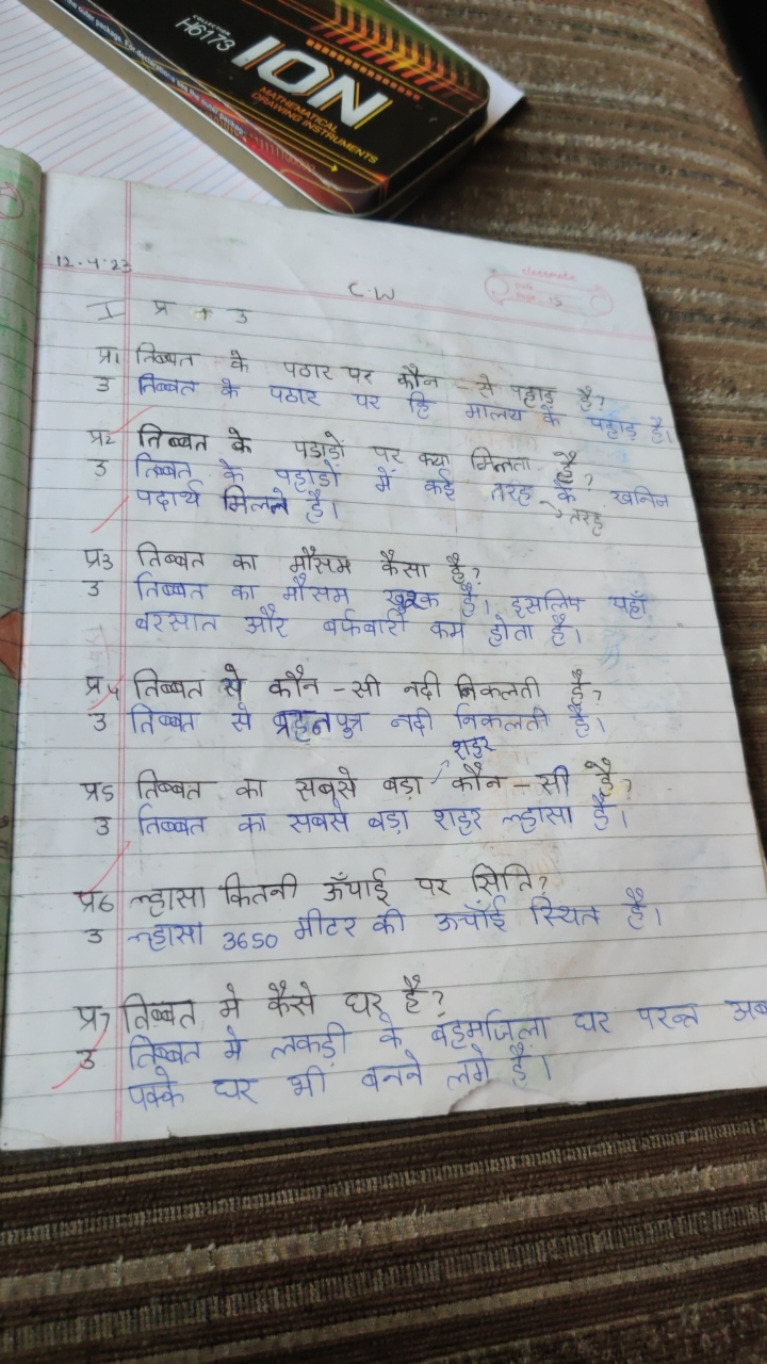 COLLECTION
H6173
ION
MATHEMATICAL
DRAWING INSTRUMENTS
12.4.23
C.W
classmate
I प्र + उ
प्र1 तिब्बत के पठार पर कौन - से पहाड़ है?
उ तिब्बत के पठार पर हि मालय के पहाड़ है।
प्र2 तिब्बत के पडाड़ों पर क्या मिलता है?
उ तिब्बत के पहाड़ों में कई तरह के खनिज
तरह
पदार्थ मिलते है।
प्र3 तिब्बत का मौसम कैसा है?
उ तिब्बत का मौसम खुश्क है। इसलिए यहाँ
बरसात और बर्फबारी कम होता है।
प्र4 तिब्बत से कौन - सी नदी निकलती है?
उ तिब्बत से ब्रहनपुत्र नदी निकलती है।
शहर
प्र5 तिब्बत का सबसे बड़ा कौन - सी है?
उ तिब्बत का सबसे बड़ा शहर ल्हासा है।
प्र6 ल्हासा कितनी ऊँचाई पर सिति?
उ ल्हासा 3650 मीटर की ऊचाँई स्थित है।
प्र7 तिब्बत मे कैसे घर है?
उ तिब्बत मे लकड़ी के बहमजिला घर परन्त अब
पक्के घर भी बनने लगे है।